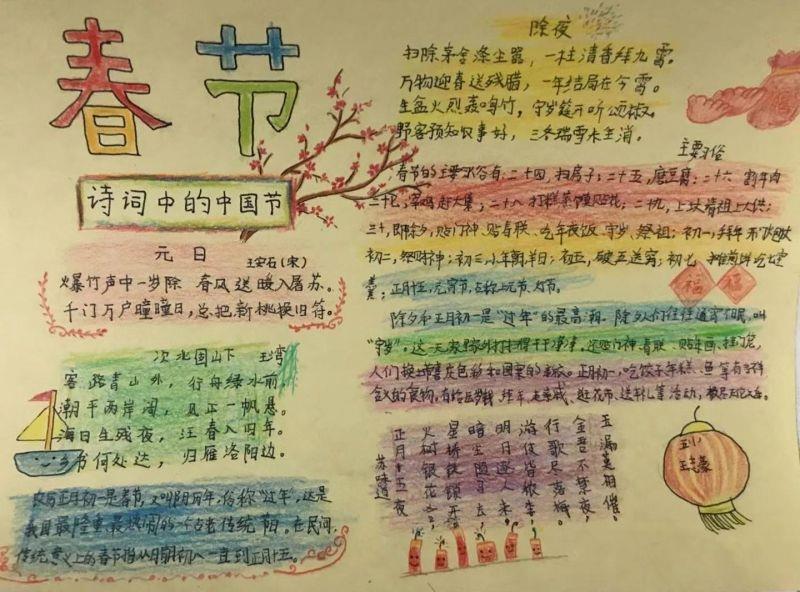 春节
诗词中的中国节
元日
王安石(宋)
爆竹声中一岁除 春风送暖入屠苏。
千门万户曈曈日,总把新桃换旧符。
次北固山下 王湾
客路青山外,行舟绿水前。
潮平两岸阔,风正一帆悬。
海日生残夜,江春入旧年。
乡书何处达,归雁洛阳边。
农历正月初一是春节,又叫阴历年,俗称“过年”,这是
我国最隆重、最热闹的一个古老传统节日。在民间,
传统意义上的春节指从腊月初八一直到正月十五。
除夜
扫除茅舍涤尘嚣,一柱清香拜九霄。
万物迎春送残腊,一年结局在今宵。
生盆火烈轰鸣竹,守岁筵开听颂椒。
野客预知农事好,三冬瑞雪未全消。
主要习俗
春节的主要习俗有:二十四,扫房子;二十五,磨豆腐;二十六 割年肉
二十七,宰鸡赶大集;二十八 打糕蒸馍贴花;二十九,上坟请祖上大供;
三十,即除夕,贴门神、贴春联、吃年夜饭、守岁、祭祖;初一,拜年
初二,祭财神;初三,小年朝羊日;初五,破五送穷;初七
正月十五,元宵节,古称上元节、灯节。
福 福
除夕和正月初一是“过年”的最高潮。除夕人们往往通宵不眠,叫
“守岁”。这一天家里家外打扫得干干净净,还贴门神、春联、贴年画、挂门笼,
人们换上带喜庆色彩和图案的新衣。正月初一,吃饺子、年糕、鱼等有吉祥
含义的食物,有给压岁钱、拜年、走亲戚、逛花市、送祝礼等活动,
正月十五夜
苏味道
火树银花合,
星桥铁锁开。
暗尘随马去,
明月逐人来。
游伎皆秾李,
行歌尽落梅。
金吾不禁夜,
玉漏莫相催。
五1